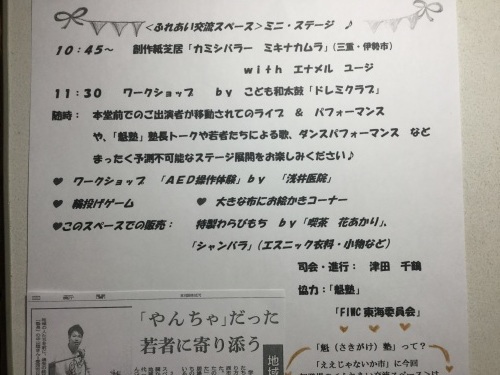 ＜ふれあい交流スペース＞ミニ・ステージ ♪
１０：４５～ 創作紙芝居「カミシバラー ミキナカムラ」（三重・伊勢市）
ｗｉｔｈ エナメル ユージ
１１：３０ ワークショップ ｂｙ こども和太鼓「ドレミクラブ」
随時： 本堂前でのご出演者が移動されてのライブ ＆ パフォーマンス
や、「魁塾」塾長トークや若者たちによる歌、ダンスパフォーマンス など
まったく予測不可能なステージ展開をお楽しみください♪
♥ ワークショップ 「ＡＥＤ操作体験」ｂｙ 「浅井医院」
♥ 輪投げゲーム ♥ 大きな布にお絵かきコーナー
♥このスペースでの販売： 特製わらびもち ｂｙ「喫茶 花あかり」、
「シャンバラ」（エスニック衣料・小物など）
司会・進行： 津田 千鶴
協力：「魁塾」
「ＦＩＷＣ東海委員会」
「やんちゃ」だった
若者に寄り添う
地域
「魁（さきがけ）塾」って？
「ええじゃないか市」に今回